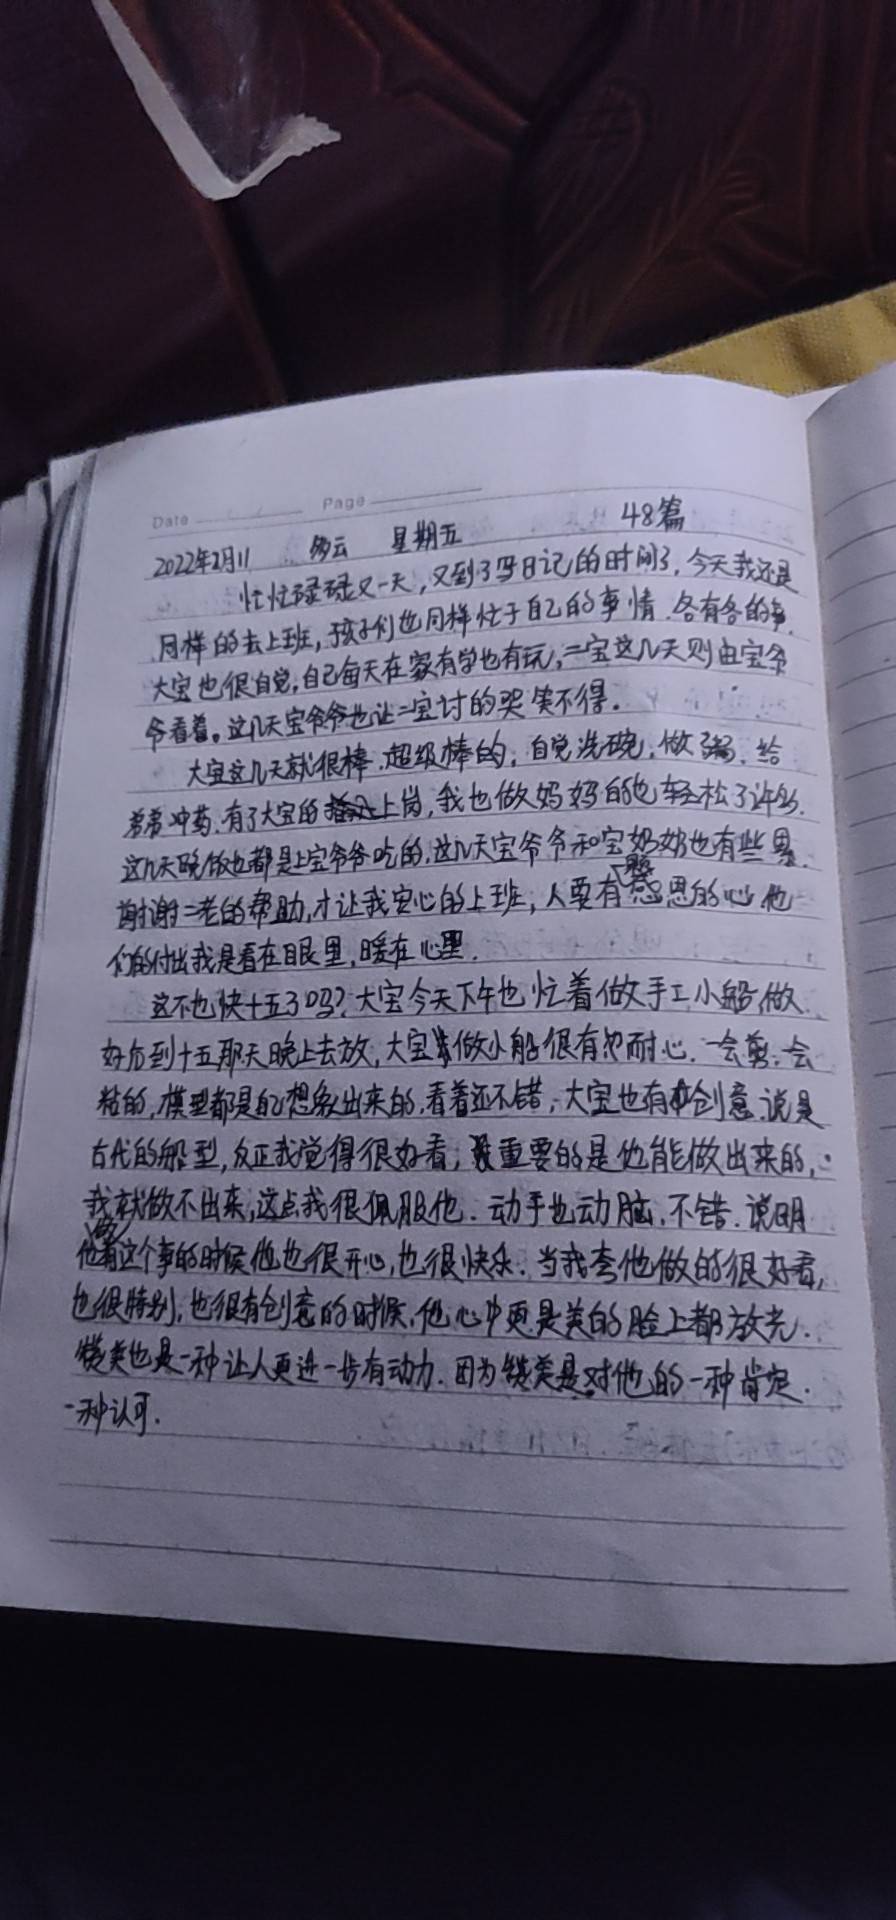 Date Page
48篇
2022年2月11 多云 星期五
忙忙碌碌又一天,又到了写日记的时间了,今天我还是
同样的去上班,孩子们也同样忙于自己的事情.各有各的事.
大宝也很自觉,自己每天在家有学也有玩,二宝这几天则由宝爷
爷看着。这几天宝爷爷也让二宝讨的哭笑不得.
大宝这几天就很棒.超级棒的,自觉洗碗,做粥.给
弟弟冲药.有了大宝的上岗,我也做妈妈的也轻松了许多.
这几天晚饭也都是上宝爷爷吃的.这几天宝爷爷和宝奶奶也有些累.
谢谢二老的帮助,才让我安心的上班,人要有一颗感恩的心他
们的付出我是看在眼里,暖在心里.
这不也快十五了吗?大宝今天下午也忙着做手工小船,做
好后到十五那天晚上去放,大宝做小船很有耐心.一会剪,会
粘的,模型都是自己想象出来的.看着还不错,大宝也有创意.说是
古代的船型,反正我觉得很好看,最重要的是他能做出来的,
我就做不出来,这点我很佩服他.动手也动脑,不错.说明
他做这个事的时候他也很开心,也很快乐.当我夸他做的很好看,
也很特别,也很有创意的时候,他心中更是美的脸上都放光.
赞美也是一种让人更进一步有动力.因为赞美是对他的一种肯定.
一种认可.